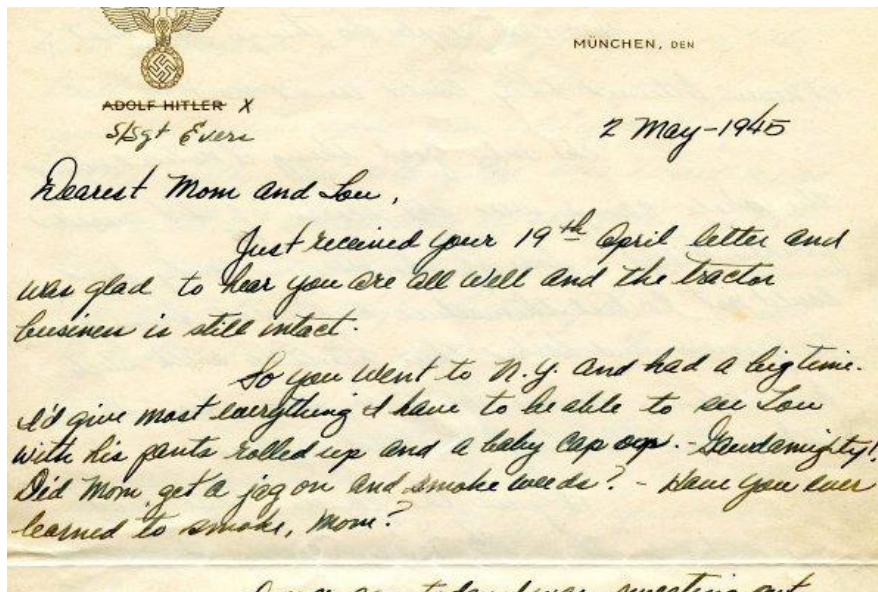 MÜNCHEN, DEN
ADOLF HITLER X
S/Sgt Evers
2 May-1945
Dearest Mom and Lou,
Just received your 19th April letter and
was glad to hear you are all well and the tractor
business is still intact.
So you went to N.Y. and had a big time.
I'd give most everything I have to be able to see Lou
with his pants rolled up and a baby cap on. - Gawdamighty!
Did Mom get a jag on and smoke weeds? - Have you ever
learned to smoke, Mom?
sweating out